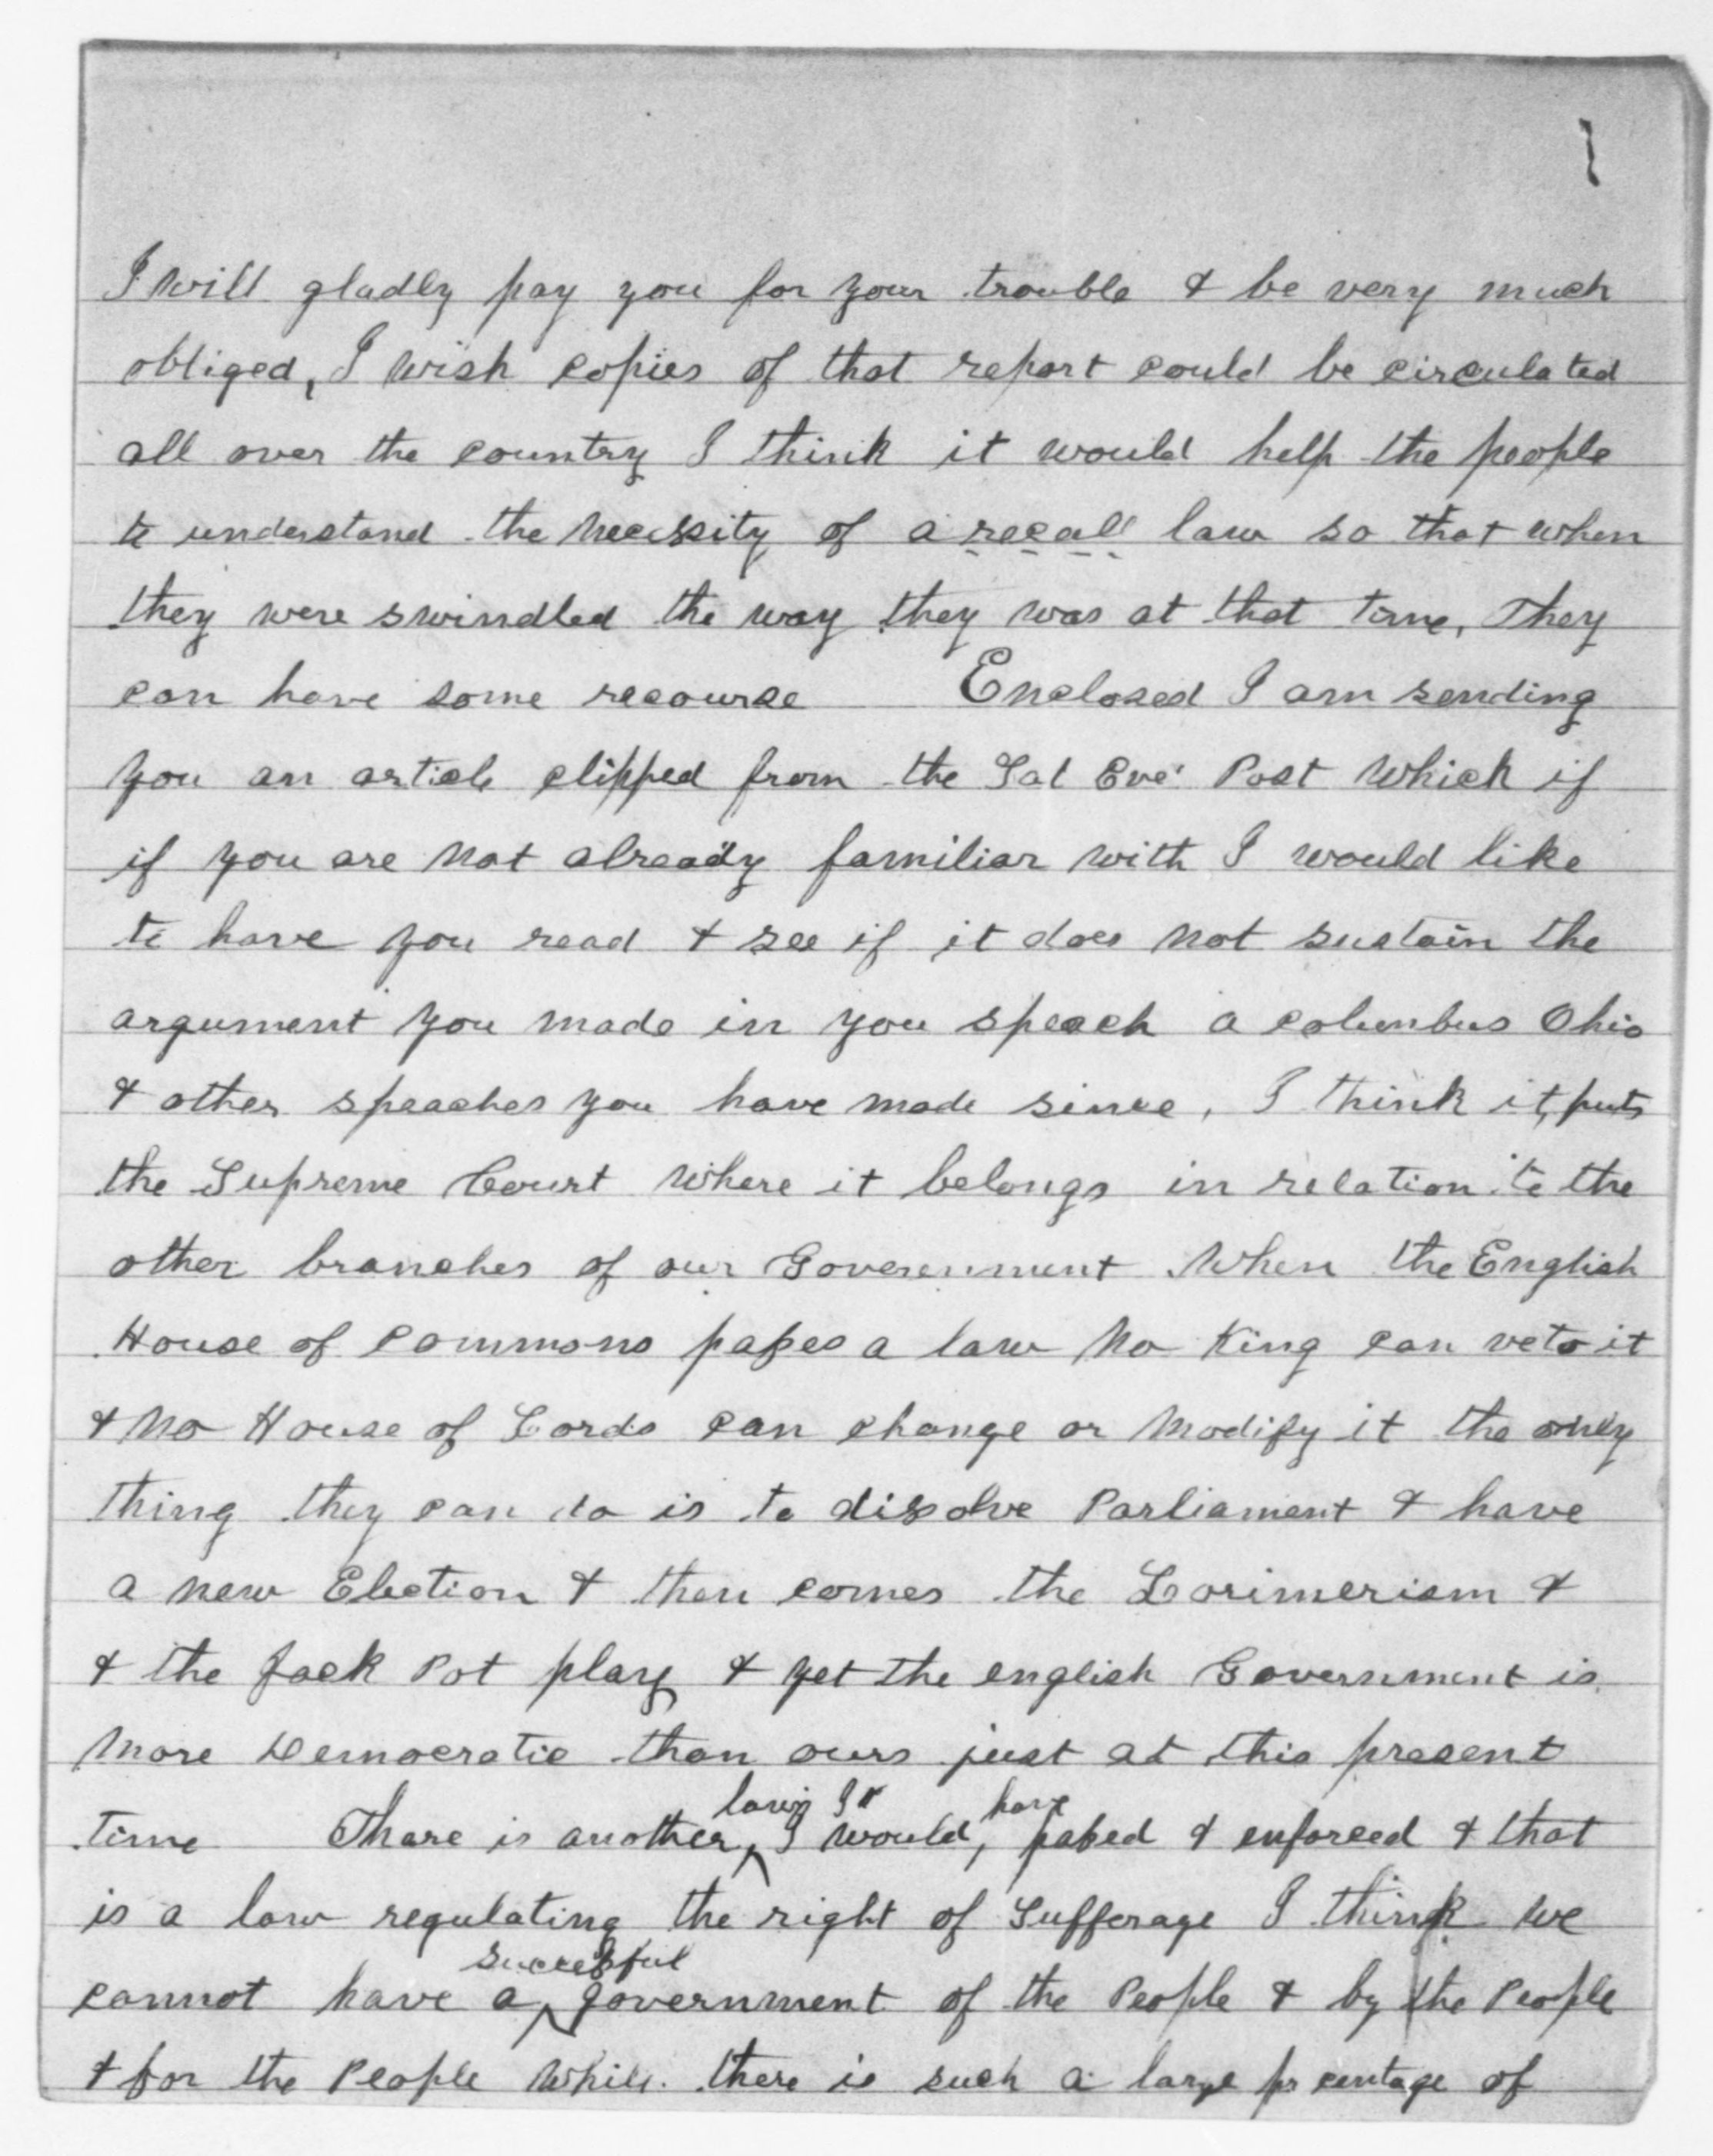 I will gladly pay you for your trouble & be very much
obliged, I wish copies of that report could be circulated
all over the country I think it would help the people
to understand the necessity of a recall law so that when
they were swindled the way they was at that time, They
can have some recourse Enclosed I am sending
you an article clipped from the Sat Eve' Post which if
if you are not already familiar with I would like
to have you read & see if it does not sustain the
argument you made in you speach a columbus Ohio
& other speaches you have made since, I think it, puts
the Supreme Court where it belongs in relation to the
other branches of our Goverenment. When the English
House of commons passes a law no King can veto it
& no House of Lords can change or modify it the only
thing they can do is to dissolve Parliament & have
a new Election & then comes the Lorimerism &
& the Jack Pot play & yet the english Government is
more Democratic than ours just at this present
time Thare is another, law I would, have passed & enforced & that
is a law regulating the right of Sufferage I think we
cannot have a successful government of the People & by the People
& for the People while there is such a large pr centage of